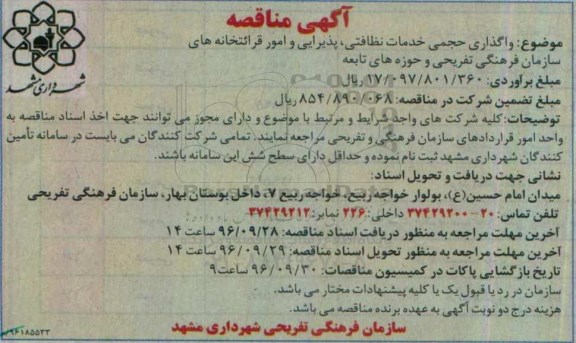 آگهی مناقصه
موضوع: واگذاری حجمی خدمات نظافتی، پذیرایی و امور قرائتخانه های
سازمان فرهنگی تفریحی و حوزه های تابعه
مبلغ برآوردی: ۱۷/۰۹۷/۸۰۱/۳۶۰ ریال
مبلغ تضمین شرکت در مناقصه: ۸۵۴/۸۹۰/۰۶۸ ریال
توضیحات: کلیه شرکت های واجد شرایط و مرتبط با موضوع و دارای مجوز می توانند جهت اخذ اسناد مناقصه به
واحد امور قراردادهای سازمان فرهنگی و تفریحی مراجعه نمایند. تمامی شرکت کنندگان می بایست در سامانه تأمین
کنندگان شهرداری مشهد ثبت نام نموده و حداقل دارای سطح شش این سامانه باشند.
نشانی جهت دریافت و تحویل اسناد:
میدان امام حسین(ع)، بولوار خواجه ربیع، خواجه ربیع ۷، داخل بوستان بهار، سازمان فرهنگی تفریحی
تلفن تماس: ۲۰-۳۷۴۲۹۲۰۰ داخلی: ۲۲۶ نمابر: ۳۷۴۲۹۲۱۲
آخرین مهلت مراجعه به منظور دریافت اسناد مناقصه: ۹۶/۰۹/۲۸ ساعت ۱۴
آخرین مهلت مراجعه به منظور تحویل اسناد مناقصه: ۹۶/۰۹/۲۹ ساعت ۱۴
تاریخ بازگشایی پاکات در کمیسیون مناقصات: ۹۶/۰۹/۳۰ ساعت ۹
سازمان در رد یا قبول یک یا کلیه پیشنهادات مختار می باشد.
هزینه درج دو نوبت آگهی به عهده برنده مناقصه می باشد.
سازمان فرهنگی تفریحی شهرداری مشهد
شهرداری مشهد
۹۶۱۸۵۵۳۳/م